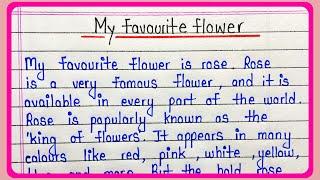 My favourite flower
My favourite flower is rose. Rose
is a very famous flower, and it is
available in every part of the world.
Rose is popularly known as the
'king of flowers'. It appears in many
colours like red, pink, white, yellow,
blue and more. But the bold rose